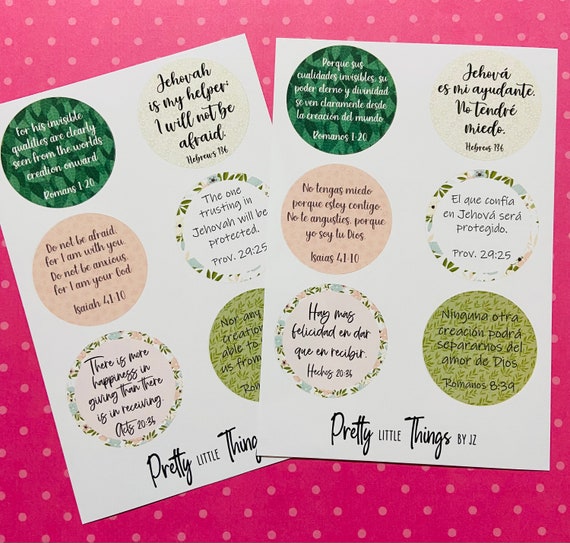 for his invisible
qualities are clearly
seen from the world's
creation onward.
Romans 1:20
Jehovah
is my helper;
I will not be
afraid.
Hebrews 13:6
Do not be afraid,
for I am with you.
Do not be anxious,
for I am your God.
Isaiah 41:10
The one
trusting in
Jehovah will be
protected.
Prov. 29:25
There is more
happiness in
giving than there
is in receiving.
Acts 20:35
Nor any
creation
able to
us from
Pretty LITTLE Things
Porque sus
cualidades invisibles, su
poder eterno y divinidad
se ven claramente desde
la creación del mundo.
Romanos 1:20
Jehová
es mi ayudante.
No tendré
miedo.
Hebreos 13:6
No tengas miedo
porque estoy contigo.
No te angusties, porque
yo soy tu Dios.
Isaías 41:10
El que confía
en Jehová será
protegido.
Prov. 29:25
Hay más
felicidad en dar
que en recibir.
Hechos 20:35
Ninguna otra
creación podrá
separarnos del
amor de Dios.
Romanos 8:39
Pretty LITTLE Things BY JZ